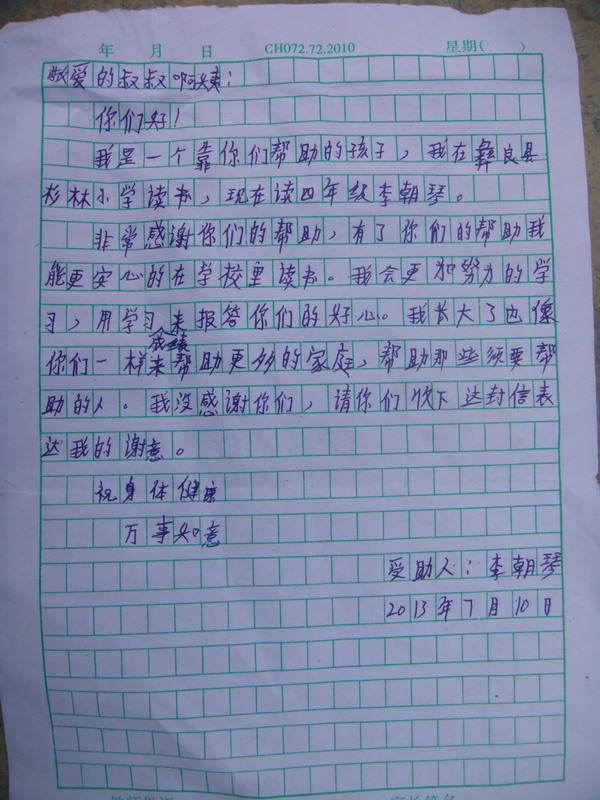 年 月 日 CH072.72.2010 星期( )
敬爱的叔叔啊姨：
你们好！
我是一个靠你们帮助的孩子，我在彝良县
杉林小学读书，现在读四年级李朝琴。
非常感谢你们的帮助，有了你们的帮助我
能更安心的在学校里读书。我会更加努力的学
习，用学习成绩来报答你们的好心。我长大了也像
你们一样来帮助更多的家庭，帮助那些须要帮
助的人。我没感谢你们，请你们收下达封信表
达我的谢意。
祝身体健康
万事如意
受助人：李朝琴
2013年7月10日